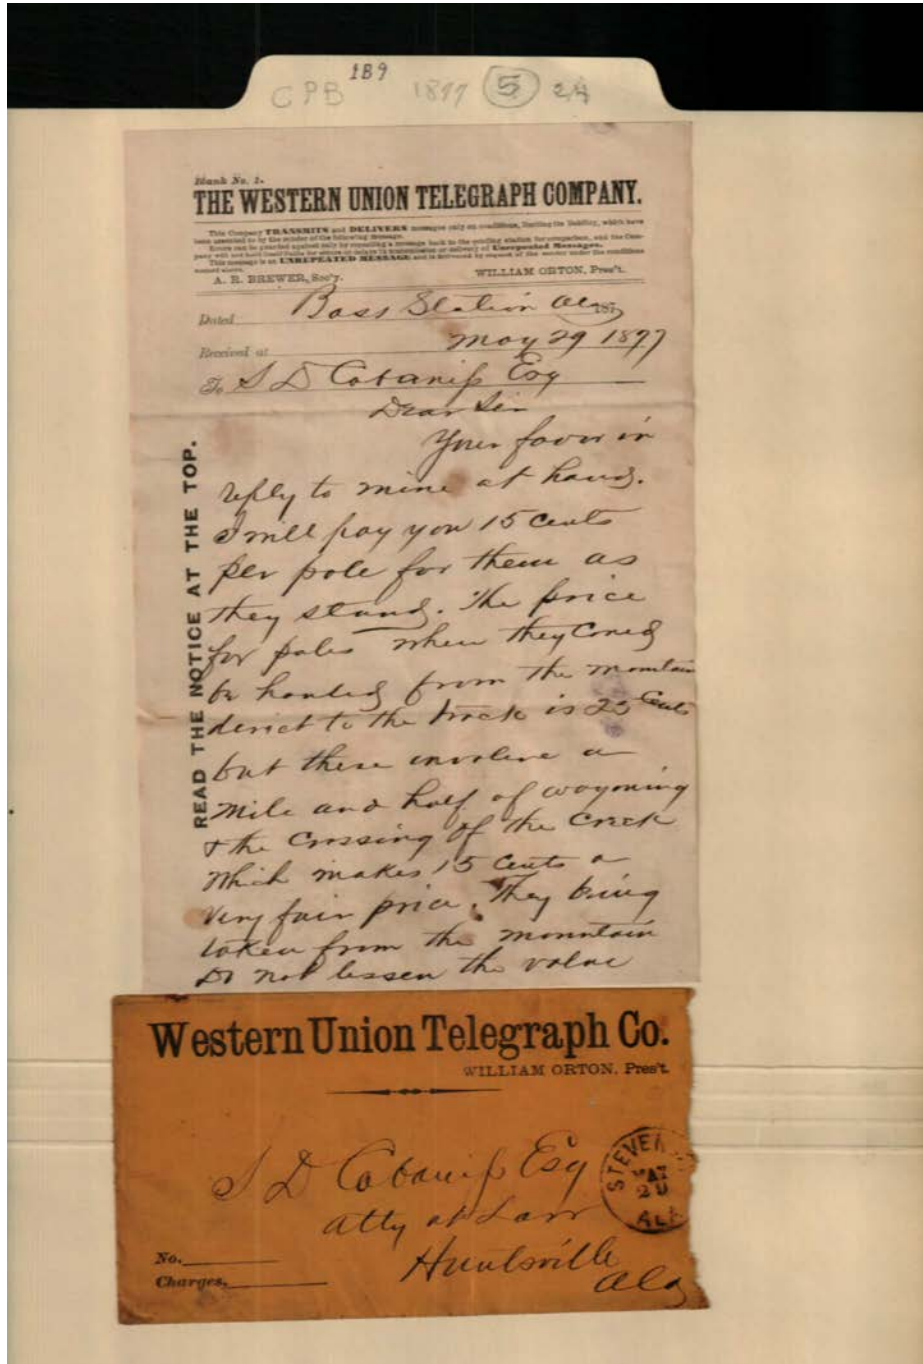 CPB 189 1877 5 24
Blank No. 1.
THE WESTERN UNION TELEGRAPH COMPANY.
This Company TRANSMITS and DELIVERS messages only on conditions, limiting its liability, which have
been assented to by the sender of the following message.
Errors can be guarded against only by repeating a message back to the sending station for comparison, and the Com-
pany will not hold itself liable for errors or delays in transmission or delivery of Unrepeated Messages.
This message is an UNREPEATED MESSAGE and is delivered by request of the sender under the conditions
named above.
A. R. BREWER, Sec'y. WILLIAM ORTON, Pres't.
Dated Bass Station Ala 187
Received at May 29 1877
To S D Cabaniss Esq
Dear Sir
Your favor in
reply to mine at hand.
I will pay you 15 cents
per pole for them as
they stand. The price
for poles when they could
be hauled from the mountain
direct to the track is 25 cents
but these involve a
mile and half of wagoning
& the crossing of the creek
which makes 15 cents a
very fair price. They being
taken from the mountain
do not lessen the value
READ THE NOTICE AT THE TOP.
Western Union Telegraph Co.
WILLIAM ORTON, Pres't.
S D Cabaniss Esq
Atty at Law
Huntsville
Ala
No.
Charges,
STEVEN
MAY
29
ALA